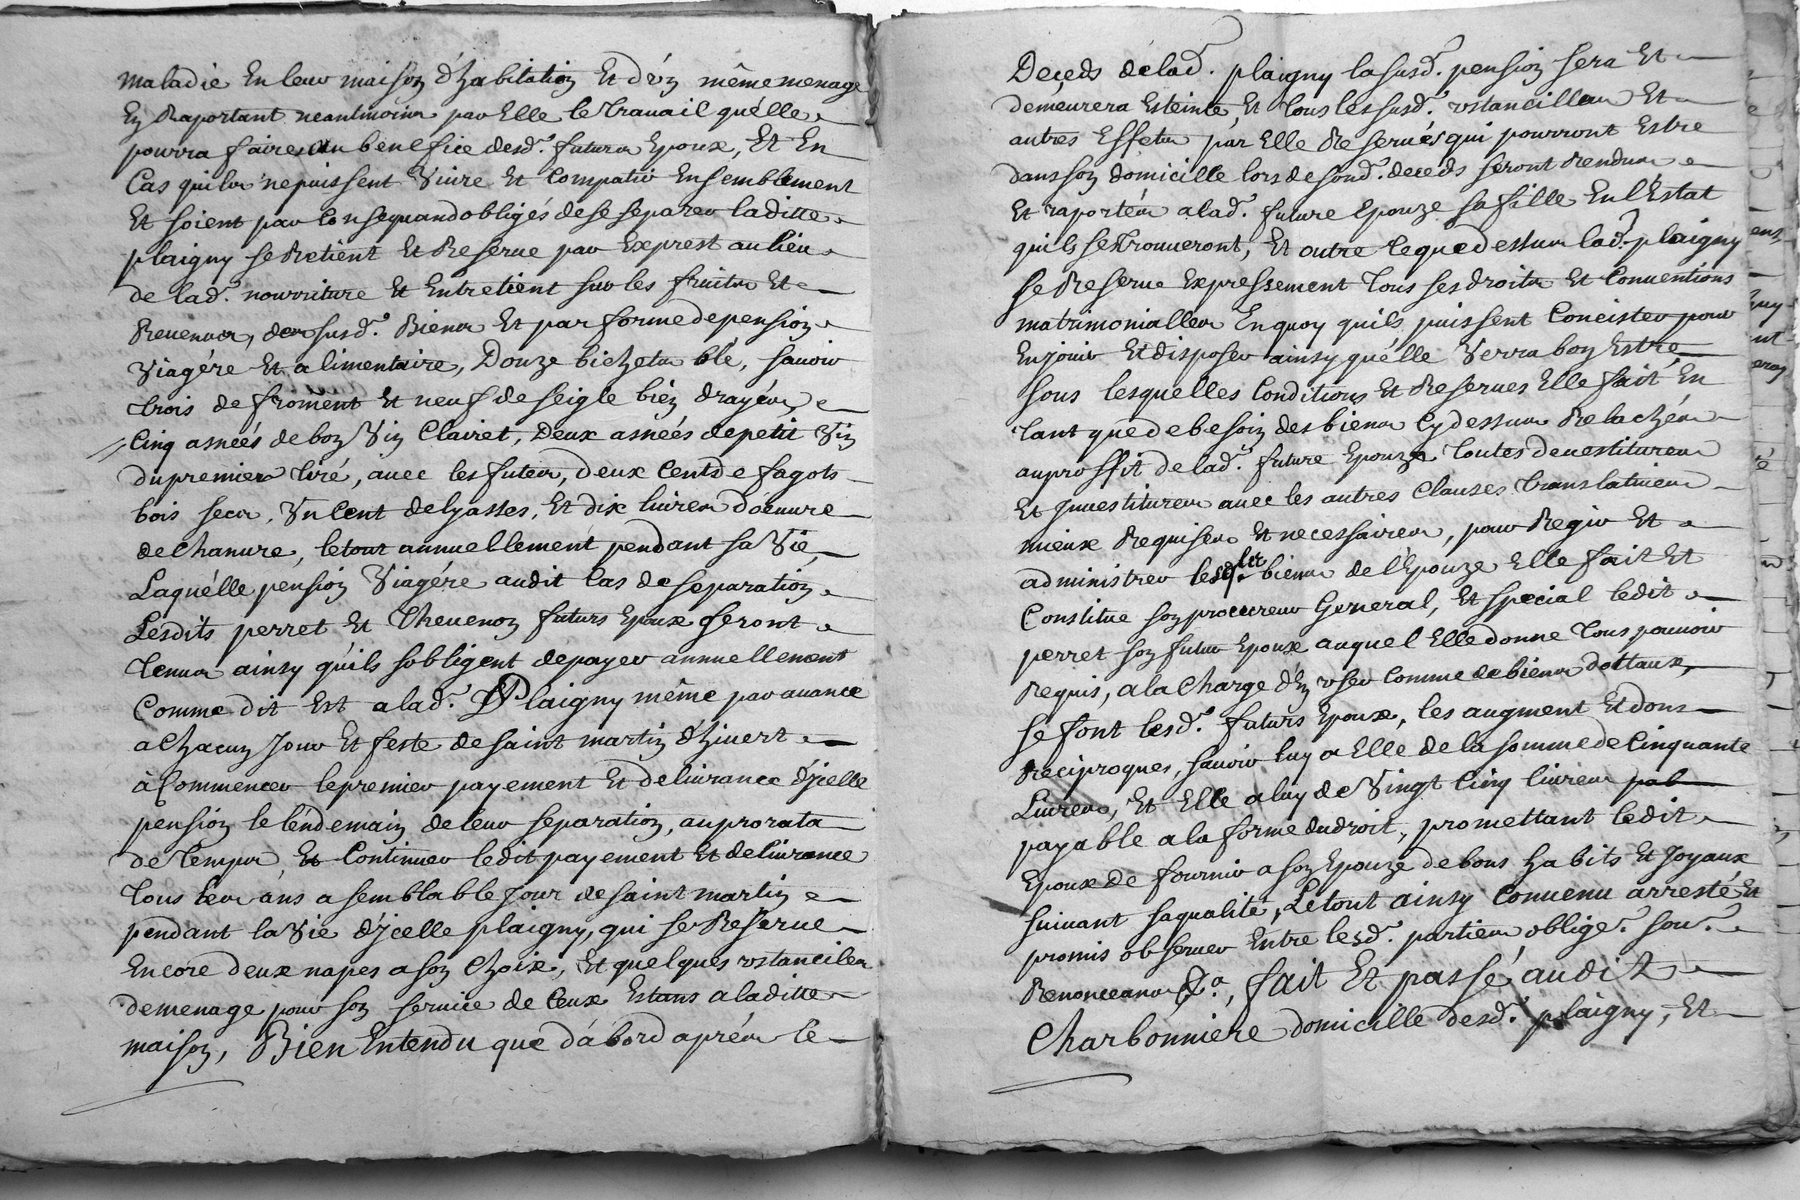 maladie En leur maison d'habitation Et d'un même menage
En Raportant neantmoins par Elle le travail qu'elle
pourra faire au benefice desd. futurs Epoux, Et En
Cas quils ne puissent Vivre Et Compatir Ensemblement
Et soient par Consequand obligés de se separer laditte
plaigny se Retient Et Reserve par Exprest au lieu
de lad. nourriture Et Entretient sur les fruits Et
Revenus, des susd. Biens Et par forme de pension
Viagére Et alimentaire, Douze bichets blé, savoir
trois de froment Et neuf de seigle bien drayés,
Cinq asnées de bon Vin Clairet, Deux asnées de petit Vin
du premier tiré, avec les futes, deux Cents de fagots
bois secs, Un Cent de lyasses, Et dix livres d'oeuvre
de Chanvre, le tout annuellement pendant sa Vie,
Laquélle pension Viagére audit Cas de separation
Lesdits perret Et Thevenon futurs Epoux seront
tenus ainsy qu'ils sobligent de payer annuellement
Comme dit Est a lad. Plaigny même par avance
a Chacun Jour Et feste de saint martin d'hivert
à Commencer le premier payement Et delivrance d'jcelle
pension le léndemain de leur separation, au prorata
de temps, Et Continuer ledit payement Et delivrance
tous les ans a semblable Jour de saint martin
pendant la Vie d'jcelle plaigny, qui se Reserve
Encore deux napes a son Choix, Et quelques ustanciles
de menage pour son service de Ceux Estans a laditte
maison, Bien Entendu que d'abord aprés le
Deceds de lad. plaigny la susd. pension sera Et
demeurera Esteinte, Et tous les susd. ustancilles Et
autres Effets par Elle Reservés qui pourront Estre
dans son domicille lors de sond. deceds seront Rendus
Et raportés a lad. future Epouze sa fille En l'Estat
qu'ils se trouveront, Et outre Ce que dessus lad. plaigny
se Reserve Expressement tous ses droits Et Conventions
matrimonialles En quoy quils puissent Concister pour
En jouir Et disposer ainsy qu'élle Verra bon Estre
sous lesquelles Conditions Et Reserves Elle fait En
tant que de besoin des biens Cy dessus Relachés
au proffit de lad. future Epouze toutes devestitures
Et Jnvestitures avec les autres Clauses translatives
mieux Requises Et necessaires, pour Regir Et
administrer lesqls biens de l'Epouze Elle fait Et
Constitue son procureur General, Et special ledit
perret son futur Epoux auquel Elle donne tous pouvoir
Requis, a la Charge d'En user Comme de biens dottaux,
se font lesd. futurs Epoux, les augment Et dons
Reciproques, savoir luy a Elle de la somme de Cinquante
Livres, Et Elle a luy de Vingt Cinq livres pal
payable a la forme du droit, promettant ledit
Epoux de fournir a son Epouze de bons habits Et Joyaux
suivant sa qualité, Le tout ainsy Convenu arresté Et
promis observer Entre lesd. parties oblige. sou.
Renonceans &a, fait Et passé audit
Charbonniere domicille desd. plaigny, Et